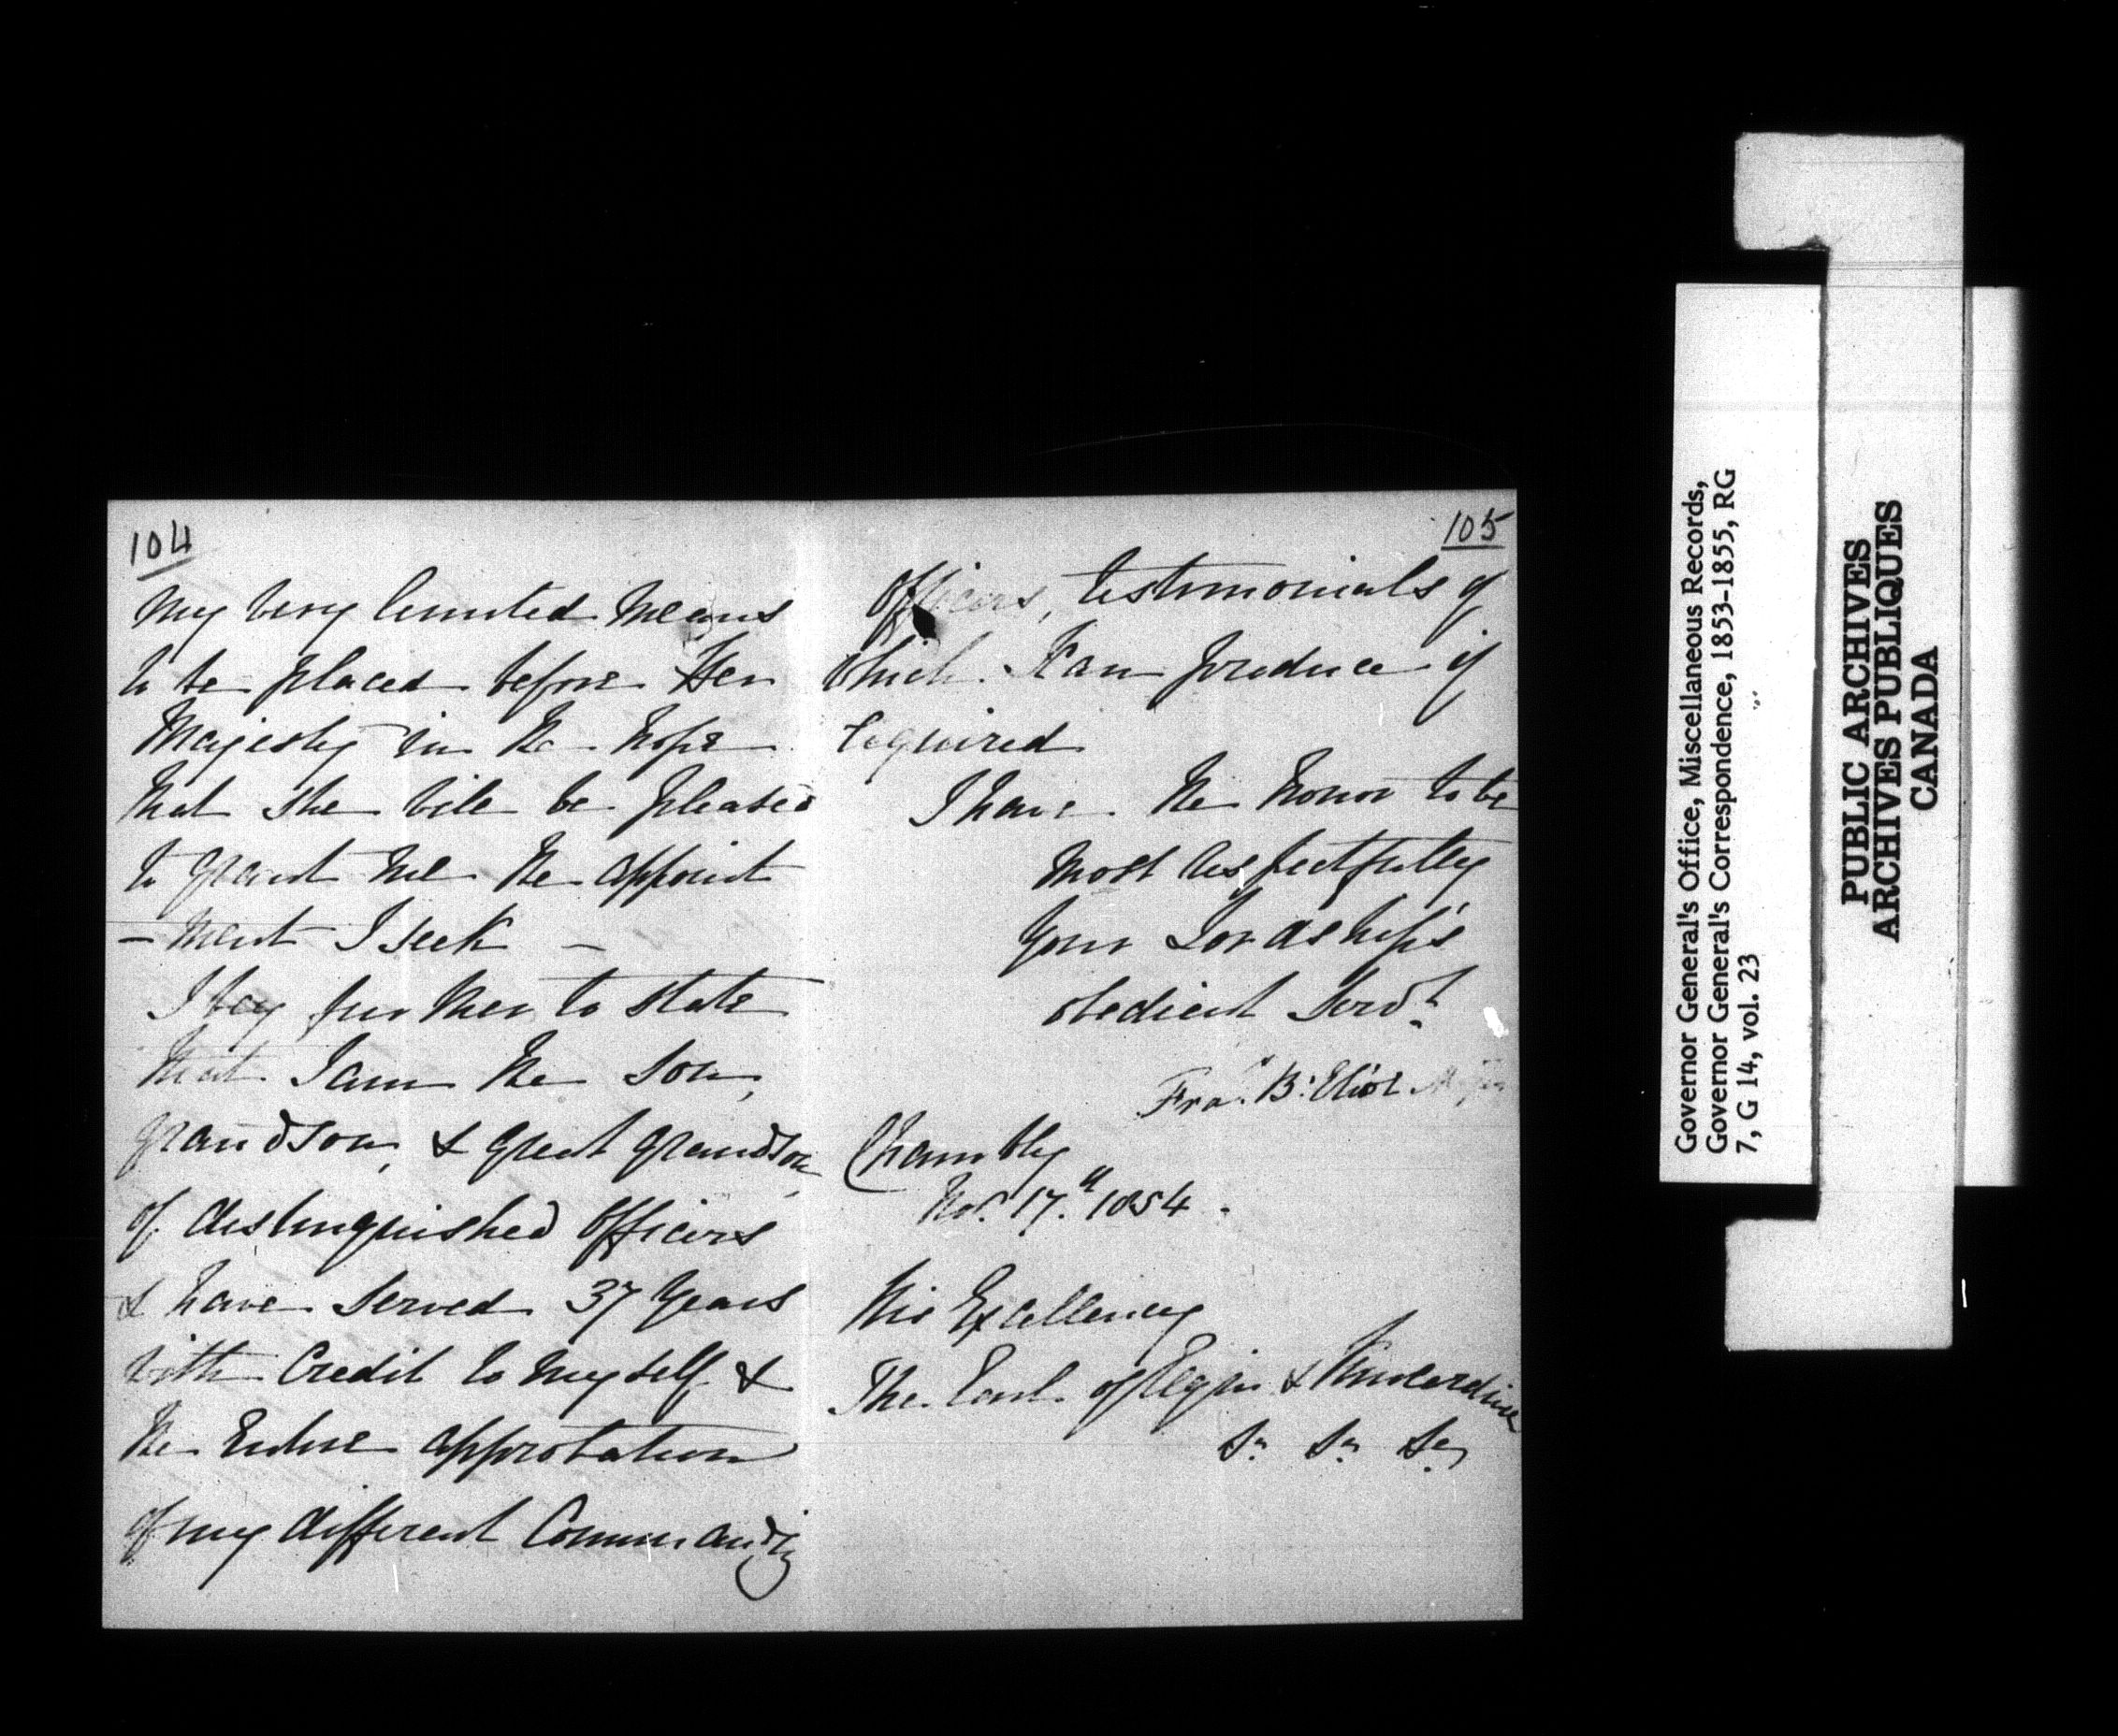 104
My very limited means
to be placed before Her
Majesty in the hope
that she will be pleased
to grant me the appoint
- ment I seek -
I beg further to state
that I am the son,
grandson, & great grandson
of distinguished officers
& have served 37 years
with Credit to myself &
the Entire approbation
of my different Commandg
105
officers, testimonials of
which I can produce if
required
I have the honor to be
most respectfully
Your Lordship's
obedient Servt.
Fras. B. Eliot Major
Chambly
Nov. 17th 1854.
His Excellency
The Earl of Elgin & Kincardine
&c &c &c
Governor General's Office, Miscellaneous Records,
Governor General's Correspondence, 1853-1855, RG
7, G 14, vol. 23
PUBLIC ARCHIVES
ARCHIVES PUBLIQUES
CANADA